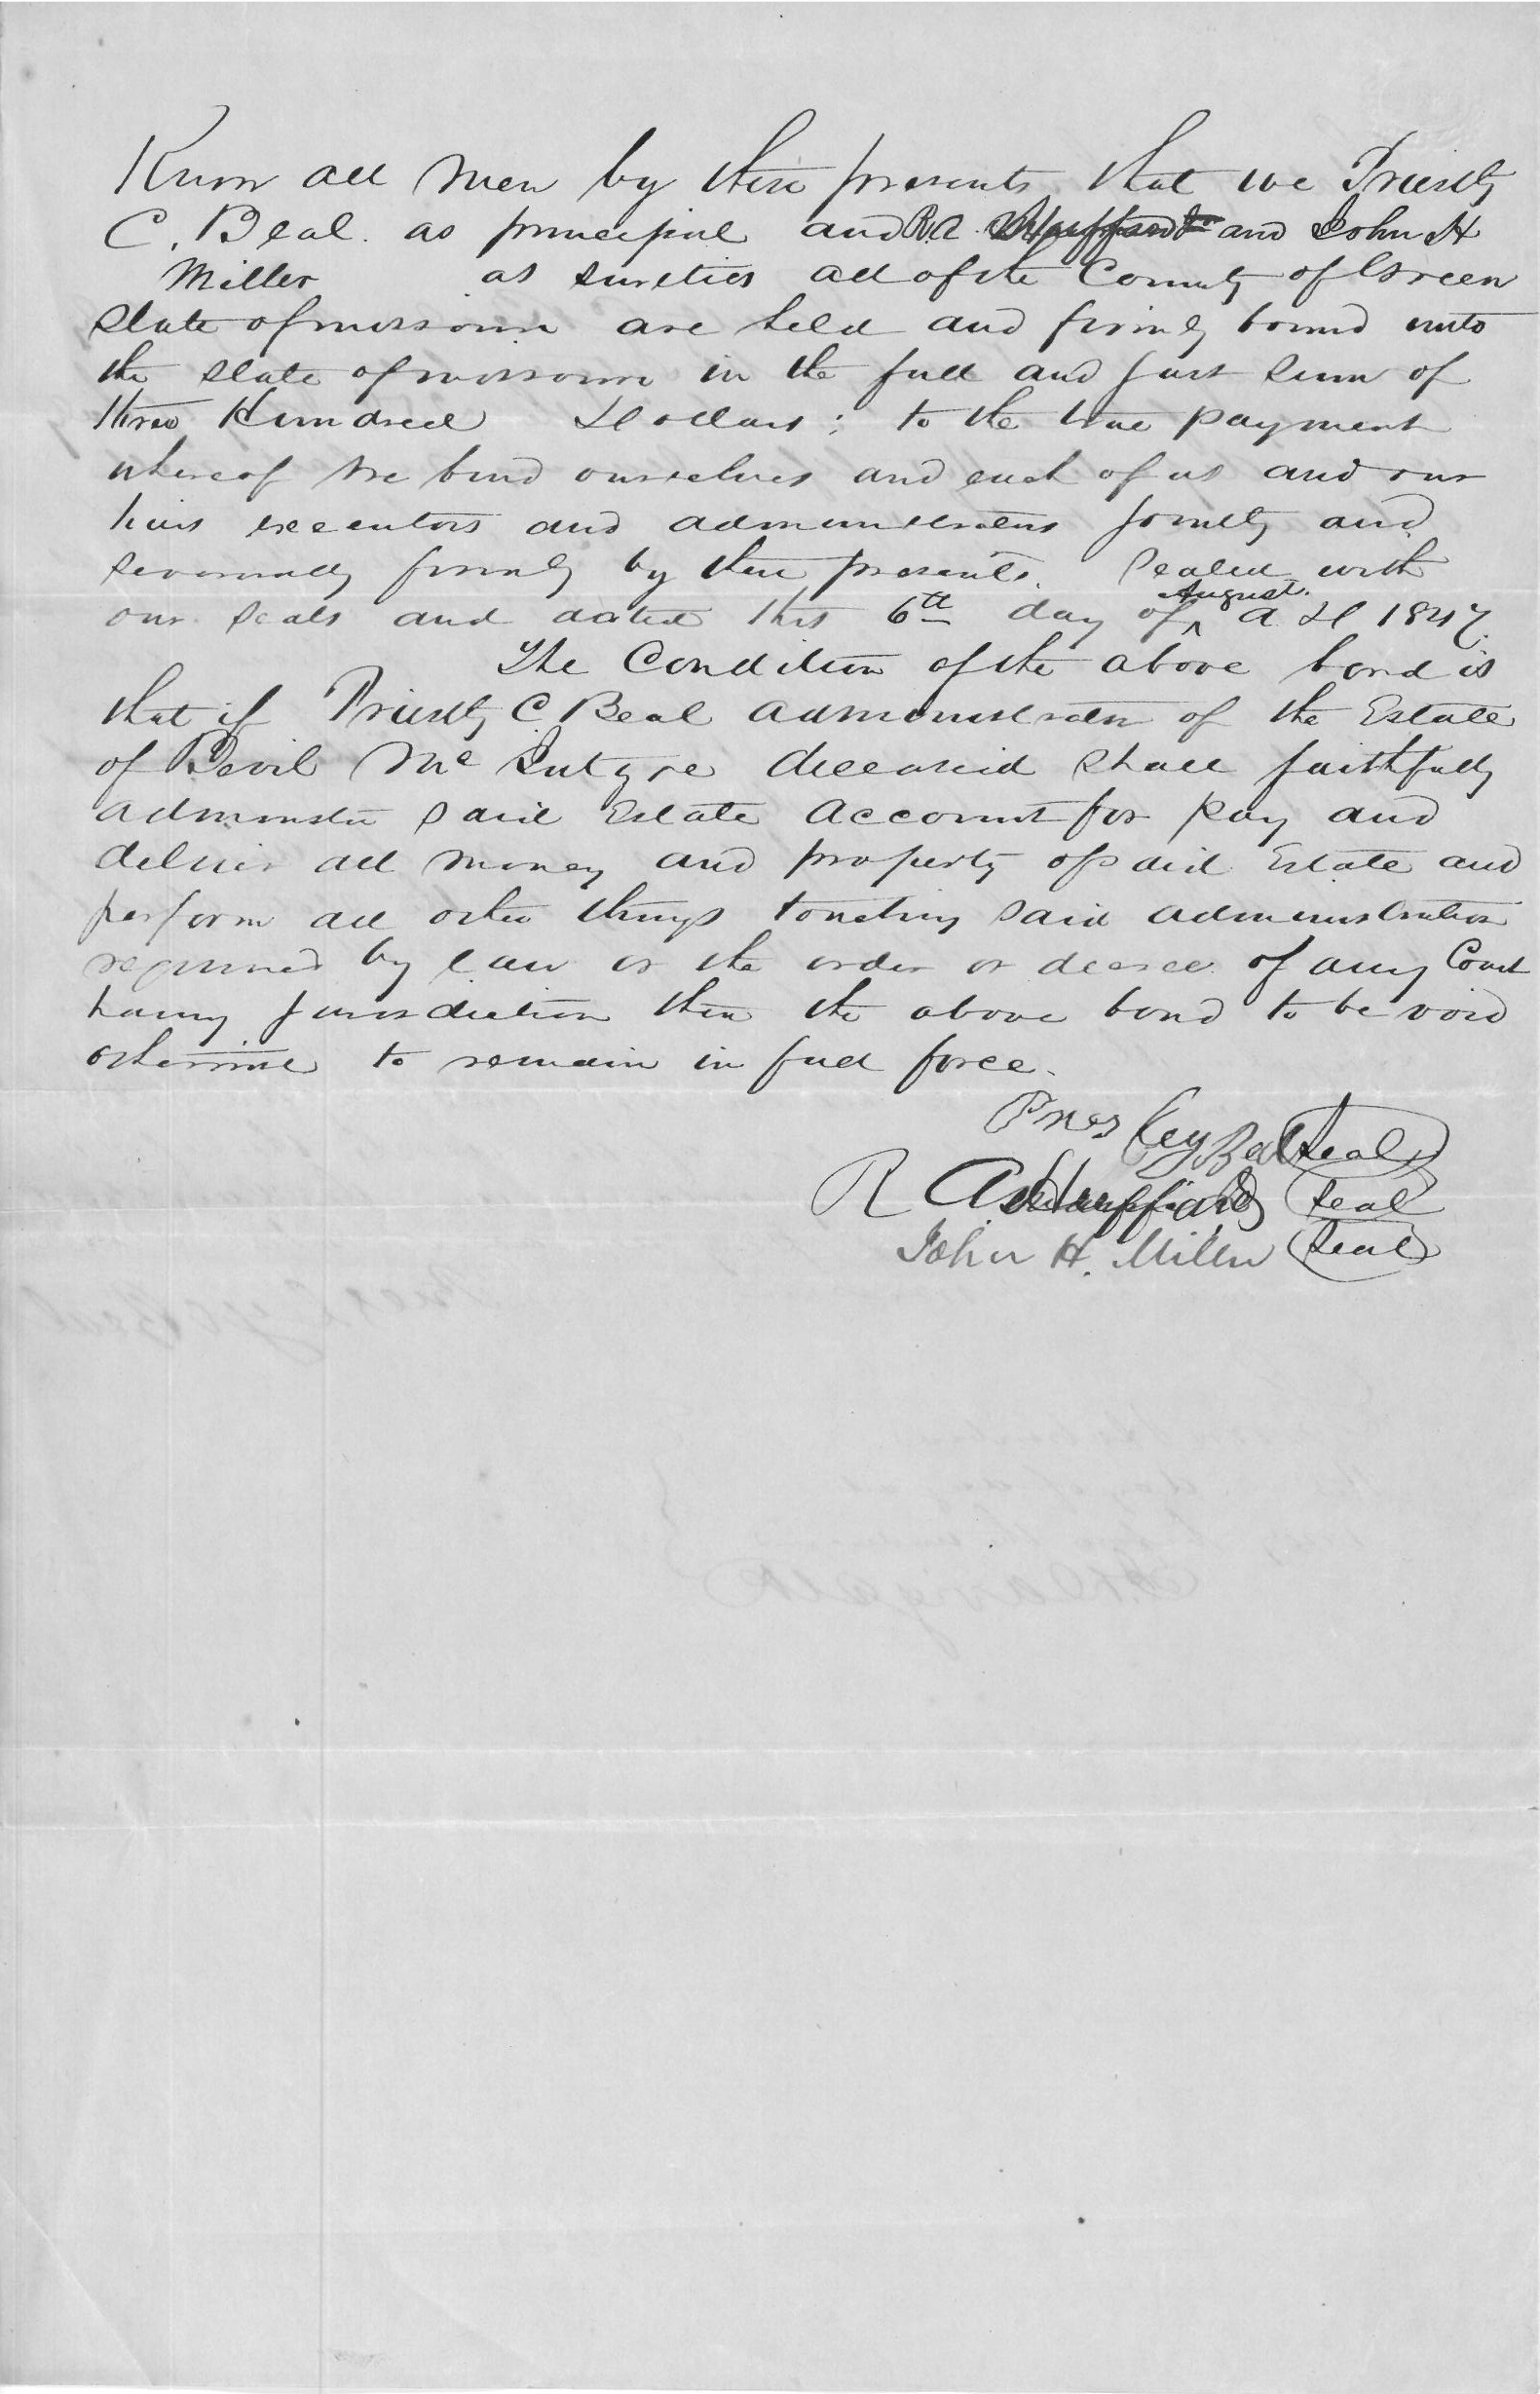 Know all Men by these presents that we Priestly
C. Beal as principal and R. A. Huffard and John H
Miller as sureties all of the County of Green
State of missouri are held and firmly bound unto
the State of missouri in the full and just sum of
three Hundred Dollars; to the true payment
whereof we bind ourselves and each of us and our
heirs executors and administrators jointly and
severally firmly by these presents. Sealed with
our seals and dated this 6th day of ^ August. A D 1847.
The Condition of the above bond is
that if Priestly C Beal administrator of the Estate
of Devil Mc Intyre deceased shall faithfully
administer said Estate account for pay and
deliver all money and property of said Estate and
perform all other things touching said administration
required by law or the order or decree of any Court
having jurisdiction then the above bond to be void
otherwise to remain in full force.
Presley Beal Seal
R A Huffard Seal
John H. Miller Seal